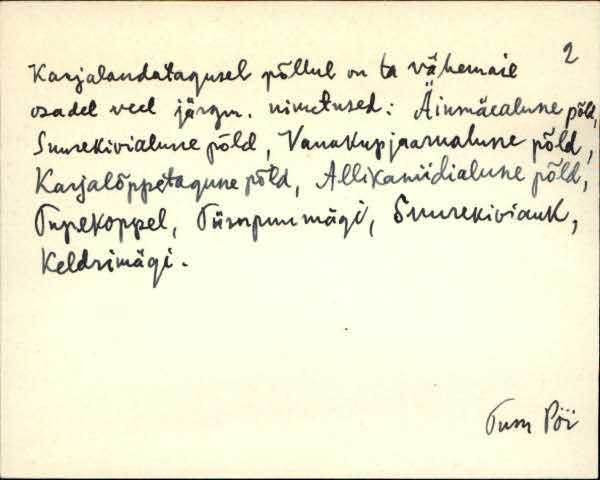 2
Karjalaudatagusel põllul on ta vähemail
osadel veel järgm. nimetused: Äiumäealune põld,
Suurekivialune põld, Vanakupjaarualune põld,
Karjalõppetagune põld, Allikamüdialune põld,
Tupekoppel, Piirupuumägi, Suurekiviauk,
Keldrimägi.
Pöi